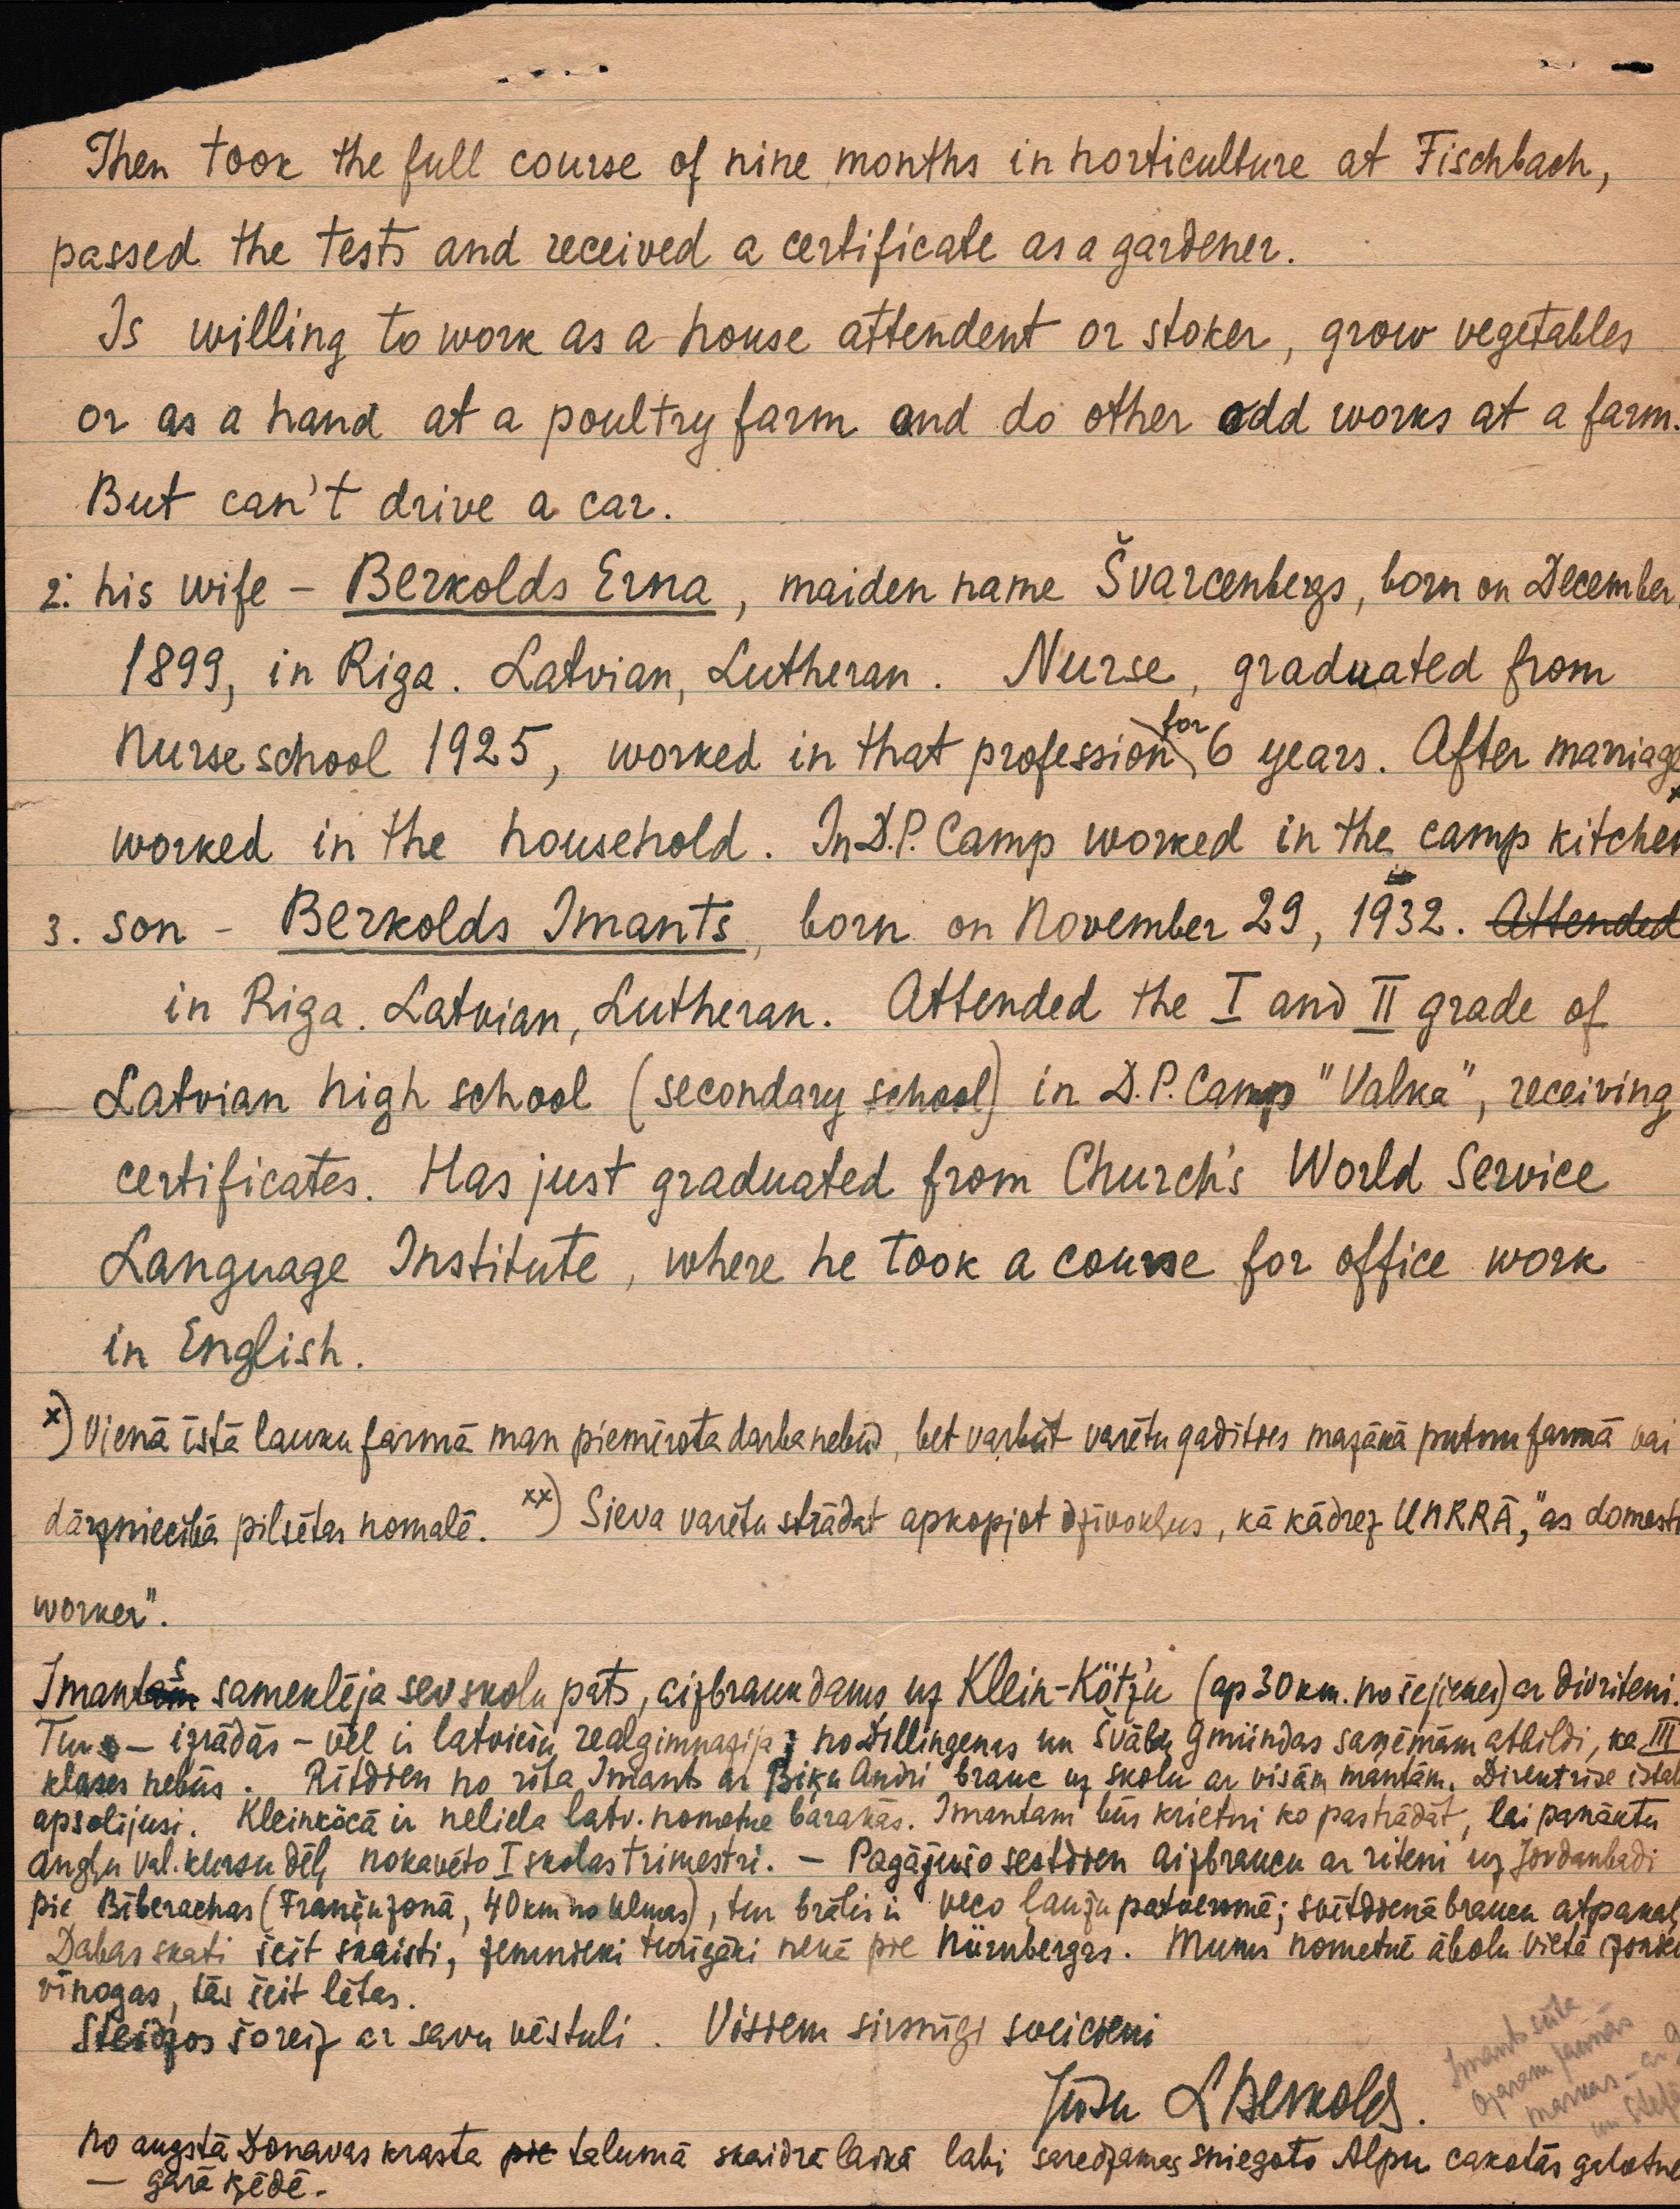 Then took the full course of nine months in horticulture at Fischbach,
passed the tests and received a certificate as a gardener.
Is willing to work as a house attendent or stoker, grow vegetables
or as a hand at a poultry farm and do other odd works at a farm.
But can't drive a car.
2. his wife – Berkolds Erna, maiden name Švarcenbergs, born on December
1899, in Riga. Latvian, Lutheran. Nurse, graduated from
Nurse school 1925, worked in that profession for 6 years. After marriage
worked in the household. In D.P. Camp worked in the camp kitchen
3. son – Berkolds Imants, born on November 29, 1932. Attended
in Riga. Latvian, Lutheran. Attended the I and II grade of
Latvian high school (secondary school) in D.P. Camp "Valka", receiving
certificates. Has just graduated from Church's World Service
Language Institute, where he took a course for office work
in English.
x) Vienā īstā lauku farmā man piemērota darba nebūs, bet varbūt varētu gadīties mazākā putnu farmā vai
dārzniecībā pilsētas nomalē. xx) Sieva varētu strādāt apkopjot dzīvokļus, kā kādrez UNRRĀ, "as domestic
worker".
Imants sameklēja sev skolu pats, aizbraukdams uz Klein-Kötz'u (ap 30 km. no šejienes) ar divriteni.
Tur – izrādās – vēl ir latviešu realgimnazija; no Dillingenas un Švābu Gmündas saņēmām atbildi, ka III
klases nebūs. Rītdien no rīta Imants ar Biķu Andri brauc uz skolu ar visām mantām. Direktrise
apsolījusi. Kleinköcā ir neliela latv. nometne barakās. Imantam būs krietni ko pastrādāt, lai panāktu
angļu val. kursu dēļ nokavēto I skolas trimestri. – Pagājušo sestdien aizbraucu ar riteni uz Jordanbadi
pie Biberachas (Franču zonā, 40 km no Ulmas), tur brālis ir veco ļaužu patversmē; svētdienā braucu atpakaļ
Dabas skati šeit skaisti, zemnieki turīgāki nekā pie Nürnbergas. Mums nometnē ābolu vietā
vīnogas, tās šeit lētas.
Steidzos šoreiz ar savu vēstuli. Visiem sirsnīgi sveicieni
Jūsu LBerkolds.
Imants sūta
markas – ar
un
No augstā Donavas krasta pie tālumā skaidrā laikā labi saredzamas sniegoto Alpu cakotās galotnes
– garā ķēdē.